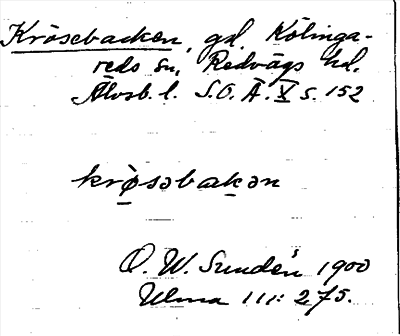 Krösebacken, gd. Kölinga-
reds sn, Redvägs hd.
Älvsb. l. S.O.Ä. X s. 152
krø̀səbakən
O. W. Sundén 1900
Ulma 111: 275.